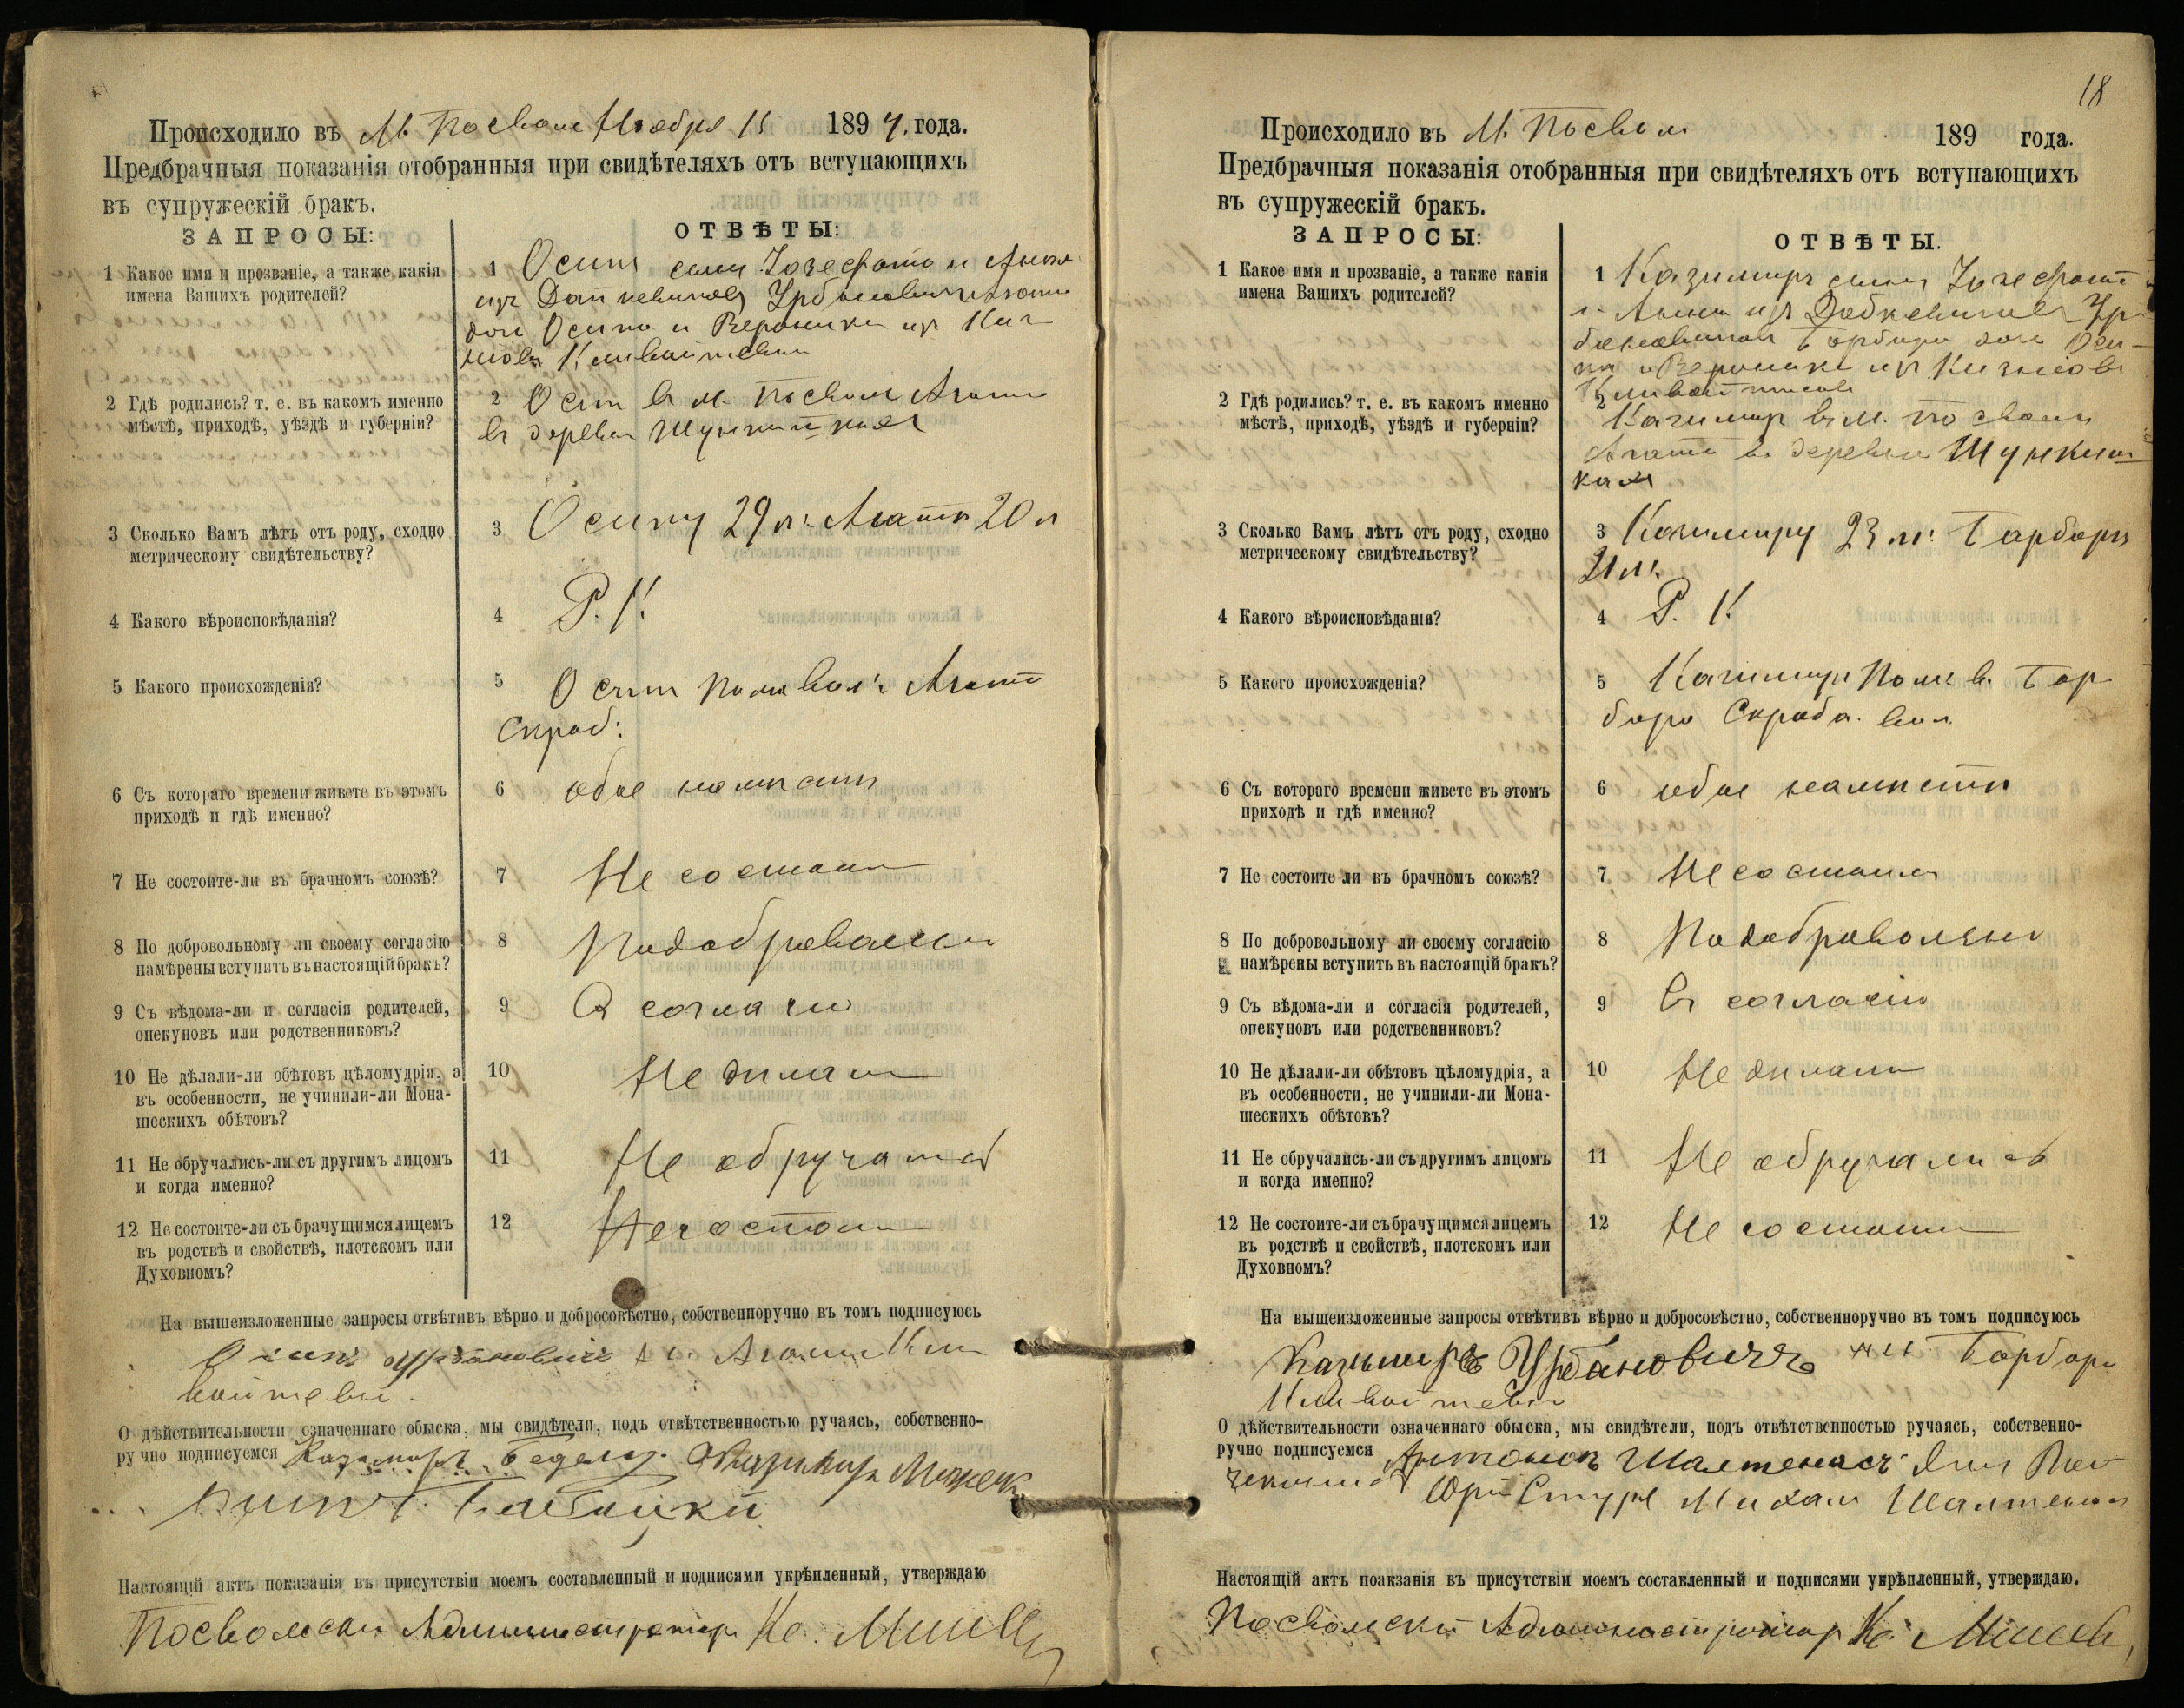 Происходило въ М. Посволе Ноября 15 1894. года.
Предбрачныя показанія отобранныя при свидѣтеляхъ отъ вступающихъ
въ супружескій бракъ.
ЗАПРОСЫ:
ОТВѢТЫ:
1 Какое имя и прозваніе, а также какія
имена Вашихъ родителей?
1 Осипъ сынъ Іозефата и Анны
изъ Урбановичъ Агата
дочь Осипа и Вероники изъ
2 Гдѣ родились? т. е. въ какомъ именно
мѣстѣ, приходѣ, уѣздѣ и губерніи?
2 Осипъ въ м. Посволе Агата
въ деревни
3 Сколько Вамъ лѣтъ отъ роду, сходно
метрическому свидѣтельству?
3 Осипу 29 л: Агатѣ 20 л
4 Какого вѣроисповѣданія?
4 Р. К.
5 Какого происхожденія?
5 Осипъ Агата
Скроб:
6 Съ котораго времени живете въ этомъ
приходѣ и гдѣ именно?
6 обое
7 Не состоите-ли въ брачномъ союзѣ?
7 Не состоимъ
8 По добровольному ли своему согласію
намѣрены вступить въ настоящій бракъ?
8 Подобровольно
9 Съ вѣдома-ли и согласія родителей,
опекуновъ или родственниковъ?
9 Съ согласія
10 Не дѣлали-ли обѣтовъ цѣломудрія, а
въ особенности, не учинили-ли Мона-
шескихъ обѣтовъ?
10 Не дѣлали
11 Не обручались-ли съ другимъ лицомъ
и когда именно?
11 Не обручались
12 Не состоите-ли съ брачущимся лицемъ
въ родствѣ и свойствѣ, плотскомъ или
Духовномъ?
12 Не состоимъ
На вышеизложенные запросы отвѣтивъ вѣрно и добросовѣстно, собственноручно въ томъ подписуюсь
Осипъ Урбановичъ Агата
О дѣйствительности означеннаго обыска, мы свидѣтели, подъ отвѣтственностью ручаясь, собственно-
ручно подписуемся Казимиръ
Настоящій актъ показанія въ присутствіи моемъ составленный и подписями укрѣпленный, утверждаю
Посвольскій Администраторъ Кс.
18
Происходило въ М. Посволе 189 года.
Предбрачныя показанія отобранныя при свидѣтеляхъ отъ вступающихъ
въ супружескій бракъ.
ЗАПРОСЫ:
ОТВѢТЫ.
1 Какое имя и прозваніе, а также какія
имена Вашихъ родителей?
1 Казимиръ сынъ Іозефата
и Анны изъ Ур
бановичъ Барбара дочь Оси-
па и Вероники изъ
2 Гдѣ родились? т. е. въ какомъ именно
мѣстѣ, приходѣ, уѣздѣ и губерніи?
2 Казимиръ въ м. Посволе
въ деревни
3 Сколько Вамъ лѣтъ отъ роду, сходно
метрическому свидѣтельству?
3 Казимиру 23 л: Барбары
21 л.
4 Какого вѣроисповѣданія?
4 Р. К
5 Какого происхожденія?
5 Казимиръ Бар
бара Скроба. вол.
6 Съ котораго времени живете въ этомъ
приходѣ и гдѣ именно?
6 обое
7 Не состоите ли въ брачномъ союзѣ?
7 Не состоимъ
8 По добровольному ли своему согласію
намѣрены вступить въ настоящій бракъ?
8 Подобровольно
9 Съ вѣдома-ли и согласія родителей,
опекуновъ или родственниковъ?
9 Съ согласія
10 Не дѣлали-ли обѣтовъ цѣломудрія, а
въ особенности, не учинили-ли Мона-
шескихъ обѣтовъ?
10 Не дѣлали
11 Не обручались-ли съ другимъ лицомъ
и когда именно?
11 Не обручались
12 Не состоите-ли съ брачущимся лицемъ
въ родствѣ и свойствѣ, плотскомъ или
Духовномъ?
12 Не состоимъ
На вышеизложенные запросы отвѣтивъ вѣрно и добросовѣстно, собственноручно въ томъ подписуюсь
Казимиръ Урбановичъ Барбара
О дѣйствительности означеннаго обыска, мы свидѣтели, подъ отвѣтственностью ручаясь, собственно-
ручно подписуемся Антонъ Шалтенасъ
Юрій Михаил Шалтенас
Настоящій актъ поакзанія въ присутствіи моемъ составленный и подписями укрѣпленный, утверждаю.
Посвольскій Администраторъ Кс.